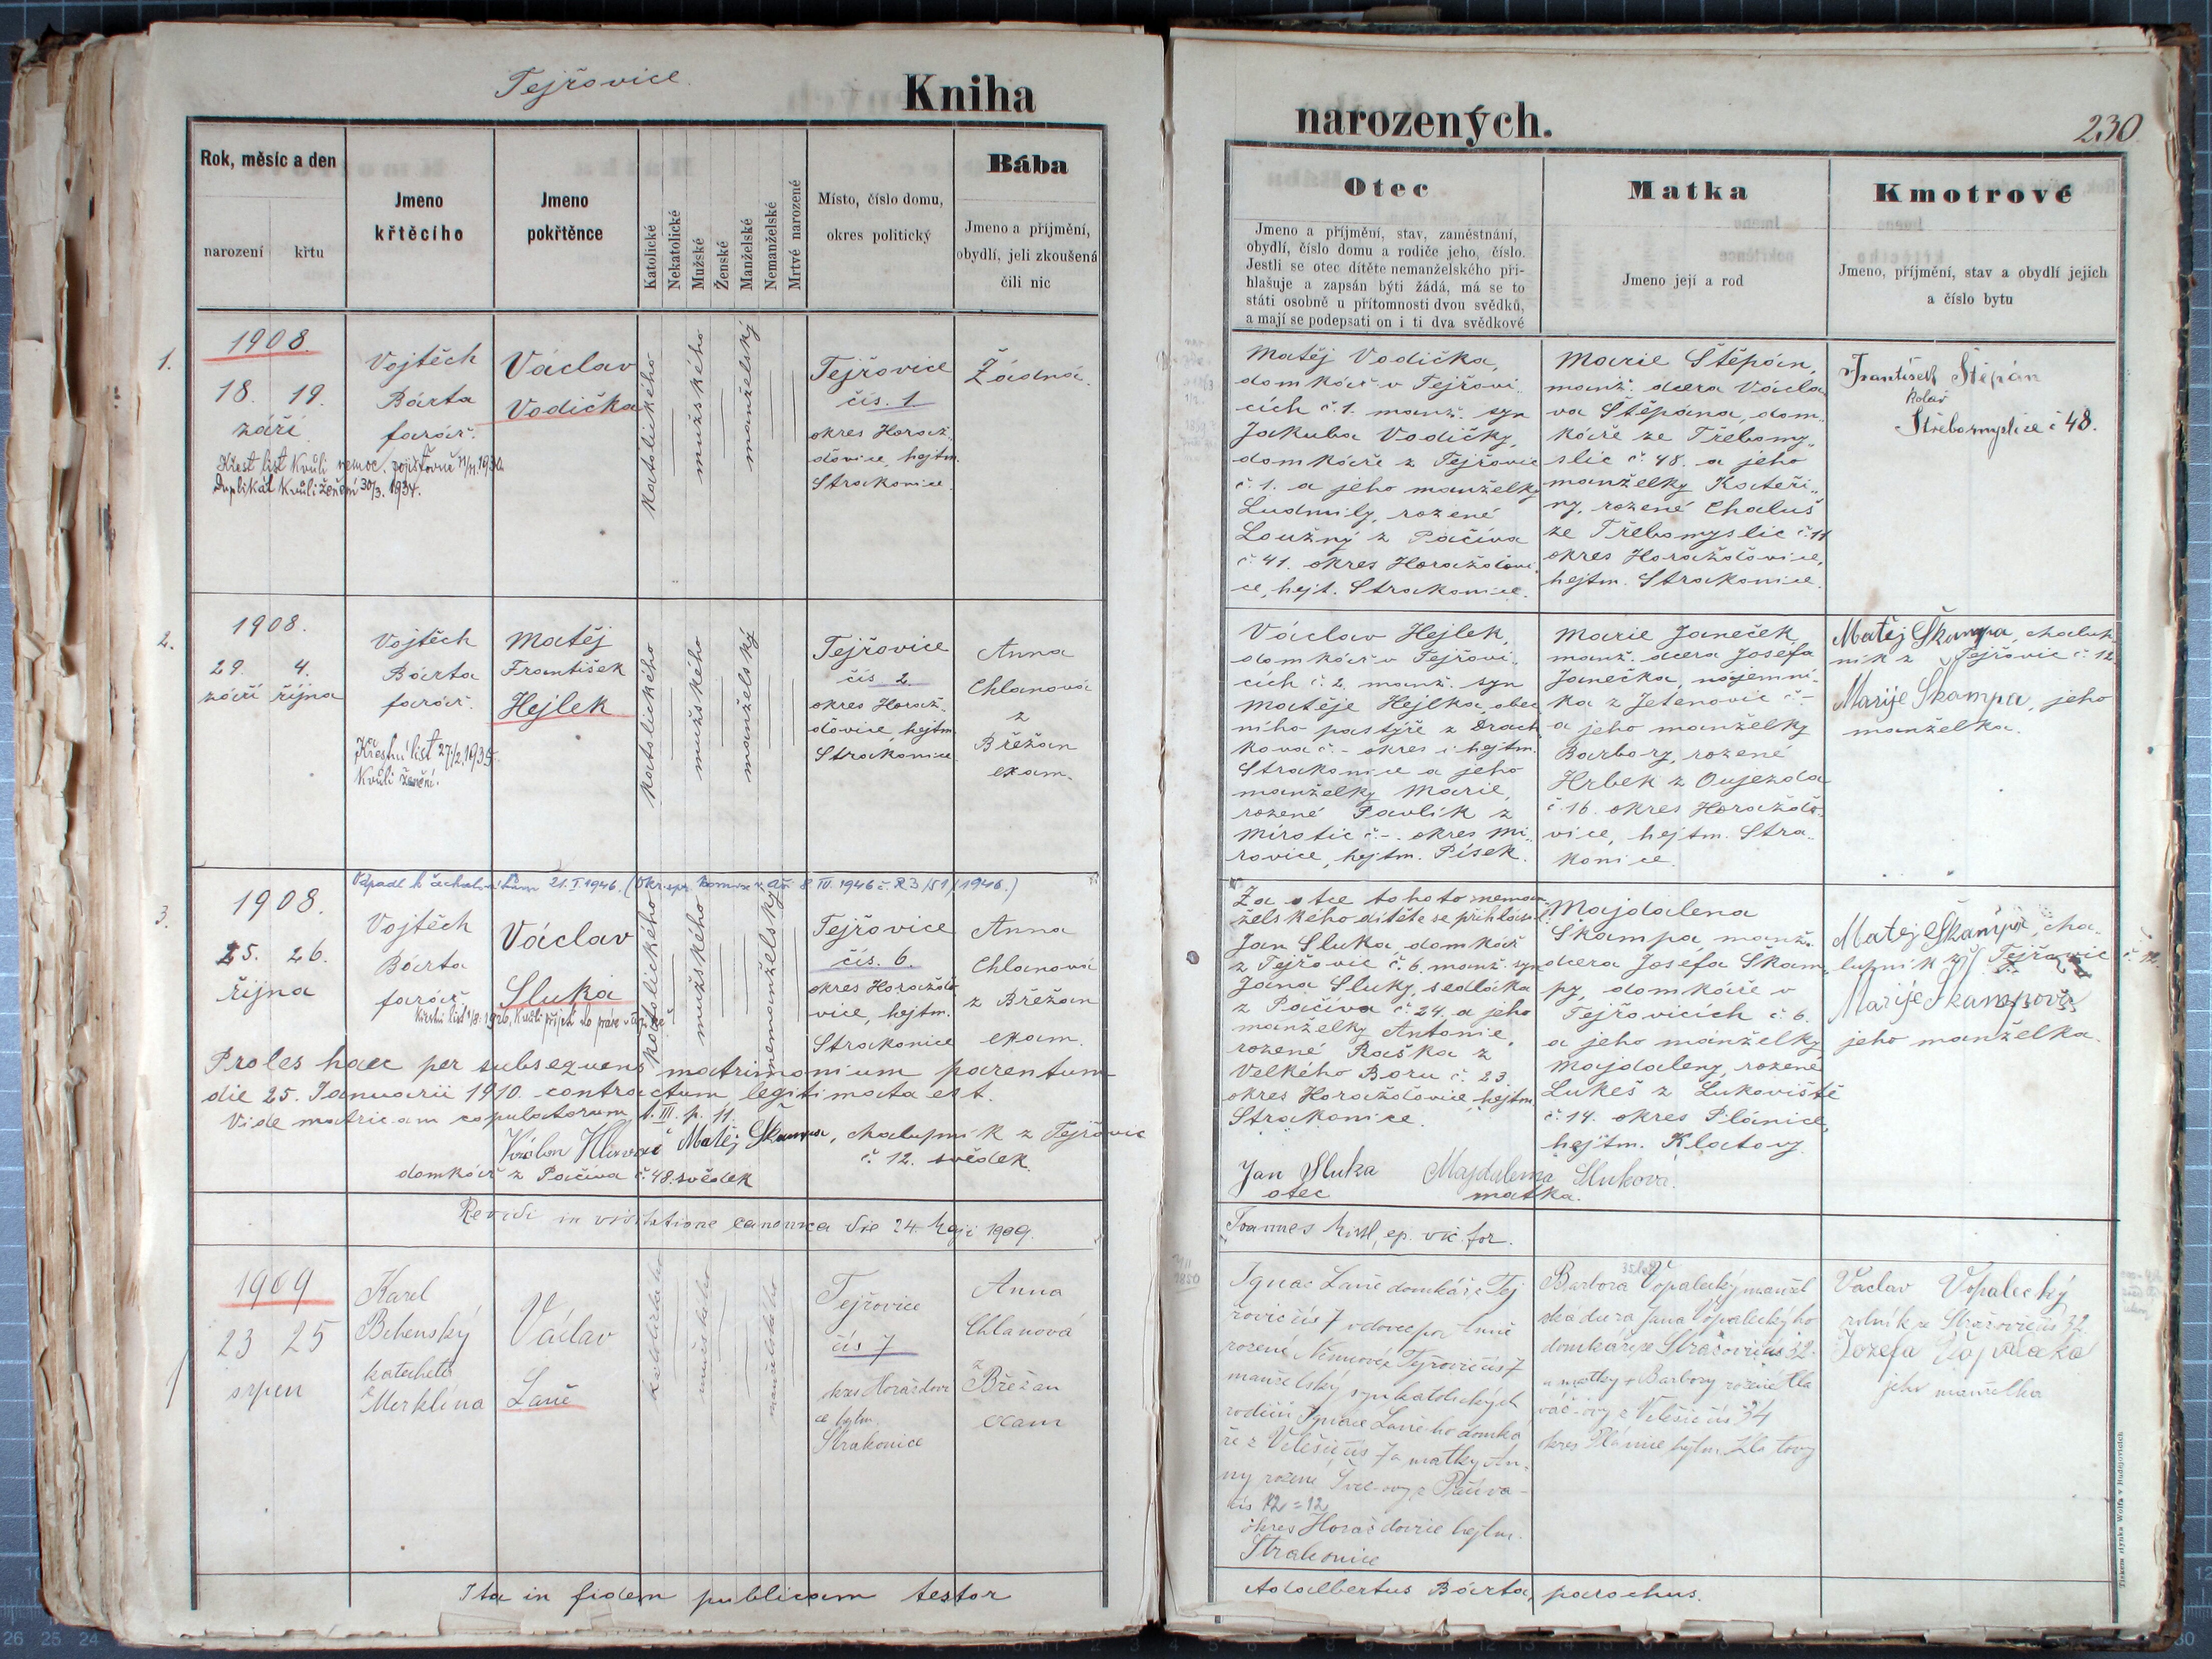 Tejřovice.
Kniha
Rok, měsíc a den
narození
křtu
Jmeno
křtěcího
Jmeno
pokřtěnce
Katolické
Nekatolické
Mužské
Ženské
Manželské
Nemanželské
Mrtvé narozené
Místo, číslo domu,
okres politický
Bába
Jmeno a příjmění,
obydlí, jeli zkoušená
čili nic
1.
1908.
18. 19.
září
Křest list kvůli nemoc. pojišťovně
Duplikát kvůli ženění 30/3. 1934.
Vojtěch
Bárta
farář.
Václav
Vodička
katolického
mužského
manželský
Tejřovice
čís. 1.
okres Horaž-
ďovice, hejtm.
Strakonice.
Žádná.
2.
1908.
29. 4.
září října
Vojtěch
Bárta
farář.
Křestní list 27/2.1935.
Kvůli ženění.
Matěj
František
Hejlek
katolického
mužského
manželský
Tejřovice
čís 2.
okres Horaž-
ďovice, hejtm.
Strakonice
Anna
Chlanová
z
Břežan
exam.
3.
21.I.1946.
1908.
25. 26.
října
Vojtěch
Bárta
farář
Václav
Sluka
katolického
mužského
nemanželský
Tejřovice
čís. 6.
okres Horažďo-
vice, hejtm.
Strakonice
Anna
Chlanová
z Břežan
exam.
Proles haec per subsequens matrimonium parentum
die 25. Januarii 1910. contractum legitimata est.
Vide matricam copulatorum t. III. p. 11.
Matěj Škampa, chalupník z Tejřovic
č. 12. svědek.
domkář z Pačiva č. 48. svědek
Revidi in visitatione canonica die 24. Maji 1909.
1909
23 25
srpen
Karel
Behenský
katecheta
z
Merklína
Václav
Laně
katolického
mužského
manželského
Tejřovice
čís 7
okres Horažďovi
ce hejtm.
Strakonice
Anna
Chlanová
z
Břežan
exam
Ita in fidem publicam testor
narozených.
230
Otec
Jmeno a příjmění, stav, zaměstnání,
obydlí, číslo domu a rodiče jeho, číslo.
Jestli se otec dítěte nemanželského při-
hlašuje a zapsán býti žádá, má se to
státi osobně u přítomnosti dvou svědků,
a mají se podepsati on i ti dva svědkové
Matka
Jmeno její a rod
Kmotrové
Jmeno, příjmění, stav a obydlí jejich
a číslo bytu
Matěj Vodička,
domkář v Tejřovi-
cích č. 1. manž. syn
Jakuba Vodičky,
domkáře z Tejřovic
č. 1. a jeho manželky
Ludmily, rozené
Loužný z Páčiva
č. 41. okres Horažďovi-
ce, hejt. Strakonice.
Marie Štěpán,
manž. dcera Václa
va Štěpána, dom-
káře ze Třebomy-
slic č. 48. a jeho
manželky Kateři-
ny, rozené Chaluš
ze Třebomyslic č. 11
okres Horažďovice,
hejtm. Strakonice.
František Štěpán
kolář
Střebomyslice č 48.
Václav Hejlek,
domkář v Tejřovi-
cích č. 2. manž. syn
Matěje Hejlka, obec
ního pastýře z Drach
kova č. - okres i hejtm.
Strakonice a jeho
manželky Marie,
rozené Pavlík z
Mirotic č. -. okres Mi-
rovice, hejtm. Písek.
Marie Janeček
manž. dcera Josefa
Janečka, nájemní-
ka z Jetenovic č -
a jeho manželky
Barbory, rozené
Hrbek z Oujezda
č. 16. okres Horažďo-
vice, hejtm. Stra-
konice.
Matěj Škampa, chalup
ník z Tejřovic č. 12.
Marije Škampa, jeho
manželka.
Za otce tohoto neman-
želského dítěte se přihlásil
Jan Sluka domkář
z Tejřovic č. 6. manž. syn
Jana Sluky, sedláka
z Pačiva č. 24. a jeho
manželky Antonie,
rozené Raška z
Velkého Boru č. 23.
okres Horažďovice, hejtm.
Strakonice.
Majdalena
Škampa, manž.
dcera Josefa Škam-
py, domkáře v
Tejřovicích č. 6.
a jeho manželky
Majdaleny, rozené
Lukeš z Lukoviště
č. 14. okres Plánice,
hejtm. Klatovy.
Matěj Škampa, cha-
lupník z Tejřovic č. 12.
Marije Škampová
jeho manželka.
Jan Sluka Majdalena Sluková.
otec matka.
ep. vic. for.
Ignac Laně domkář z Tej
řovic čís 7 vdovec po Anně
rozené Němcové z Tejřovic čís 7
manželský syn katolických
rodičů Ignace Laně ho domká
ře z Velešic čís 7 a matky An-
ny rozené Švec-ovy z Páčiva
čís 12 = 12
okres Horažďovice hejtm.
Strakonice
Barbora Vopalecký manžel
ská dcera Jana Vopaleckýho
domkáře ze Strašovic čís 32.
a matky Barbory rozené Hla
váč-ovy z Velešic čís 34
okres Plánice hejtm. Klatovy
Václav Vopalecký
rolník ze Strašovic čís 32
jeho manželka
Adalbertus Bárta, parochus.